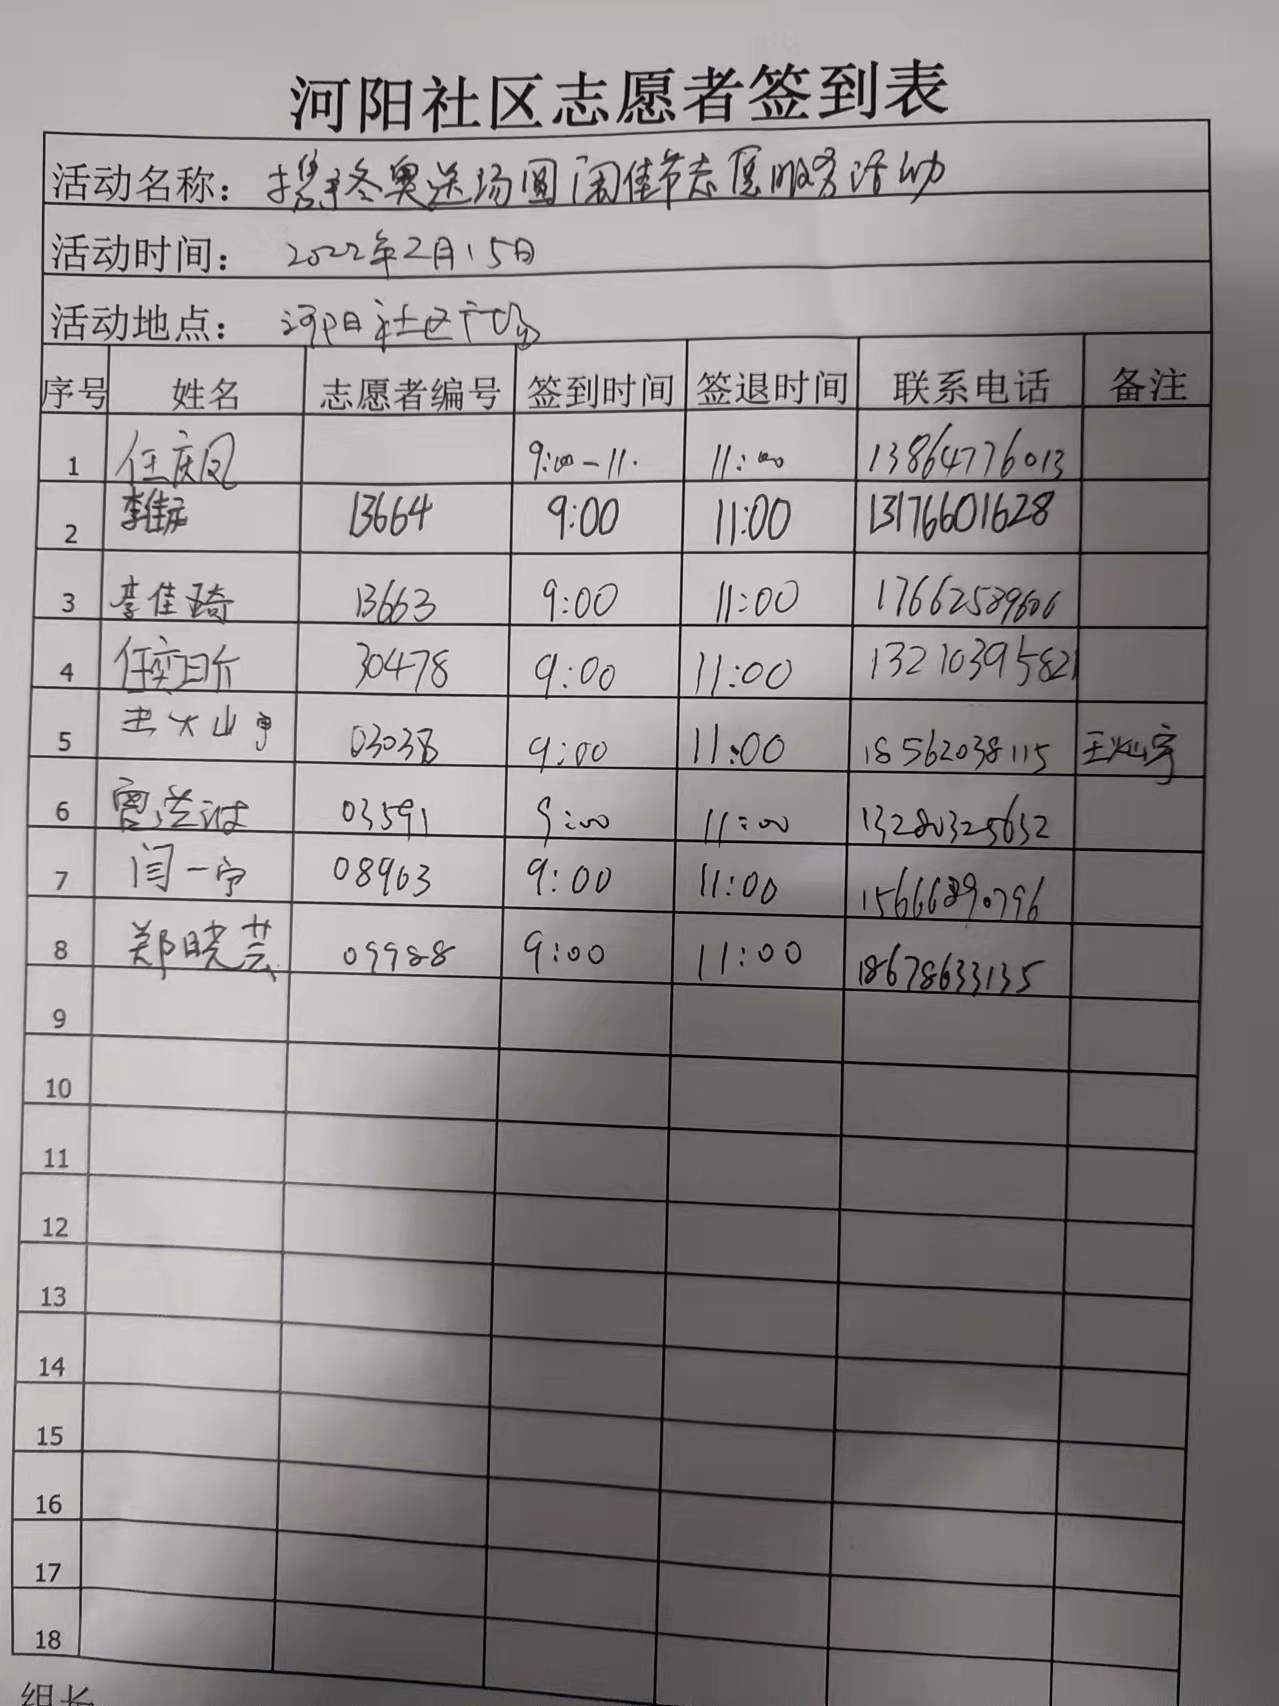 河阳社区志愿者签到表
活动名称：携手冬奥送汤圆 闹佳节志愿服务活动
活动时间：2022年2月15日
活动地点：河阳社区广场
序号 姓名 志愿者编号 签到时间 签退时间 联系电话 备注
1 任庆凤 9:00-11. 11:00 13864776013
2 李佳 13664 9:00 11:00 13176601628
3 李佳琦 13663 9:00 11:00 17662589606
4 任奕 30478 9:00 11:00 13210395821
5 王灿宇 03038 9:00 11:00 18562038115 王灿宇
6 03591 9:00 11:00 13280325632
7 闫一宁 08963 9:00 11:00 15666890796
8 郑晓芸 09988 9:00 11:00 18678633135
9
10
11
12
13
14
15
16
17
18
组长